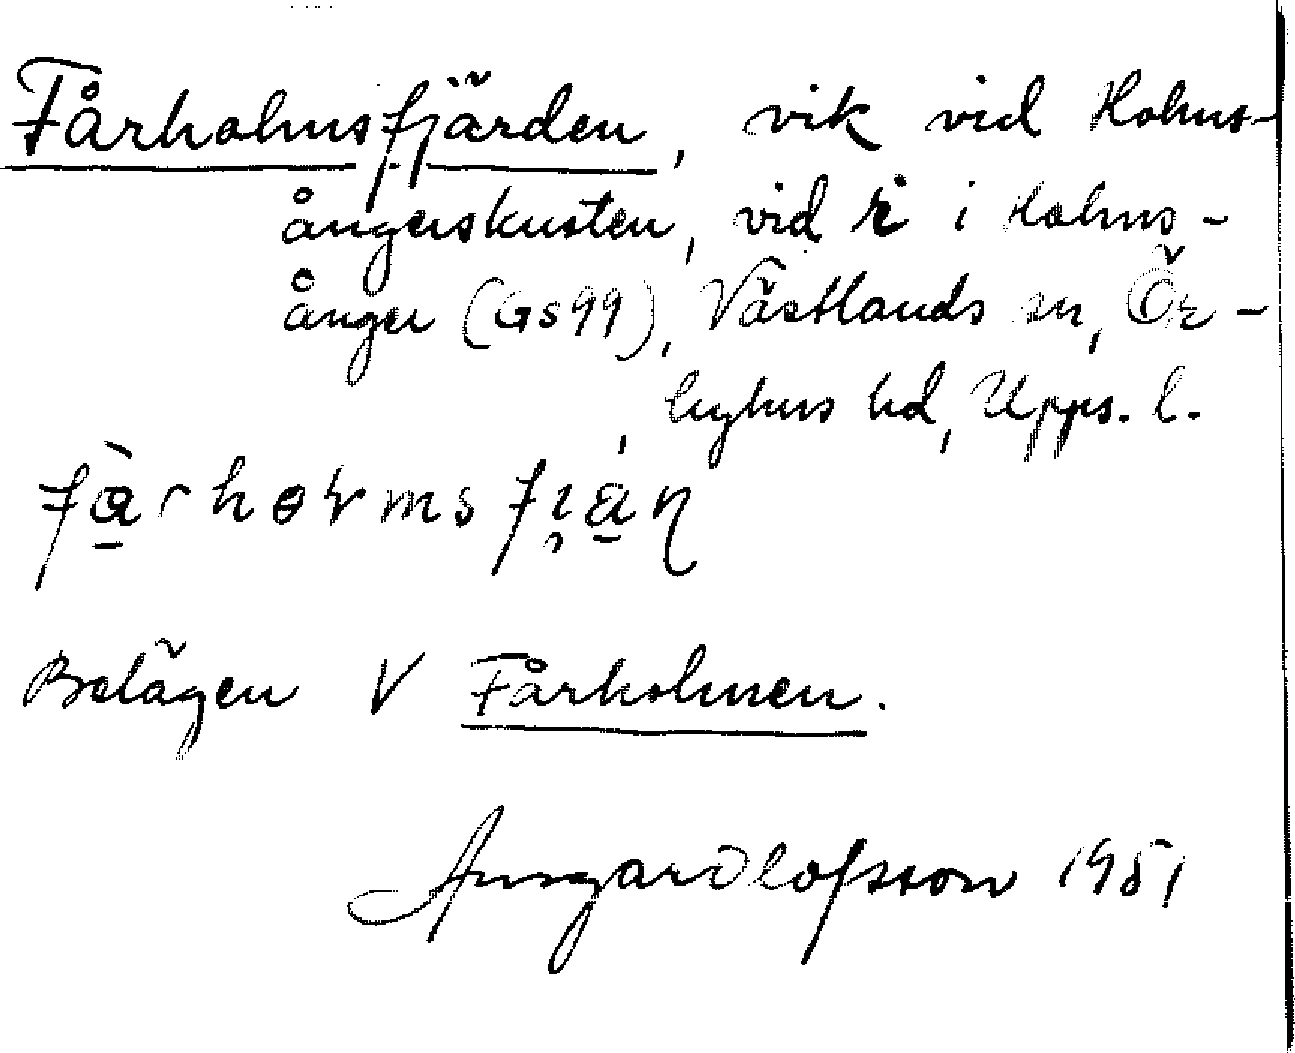 Fårholmsfjärden, vik vid Holms-
ångerskusten, vid r i Holms-
ånger (GS99), Västlands sn, Ör-
byhus hd, Upps. l.
Belägen V Fårholmen.
Ansgar Olofsson 1951